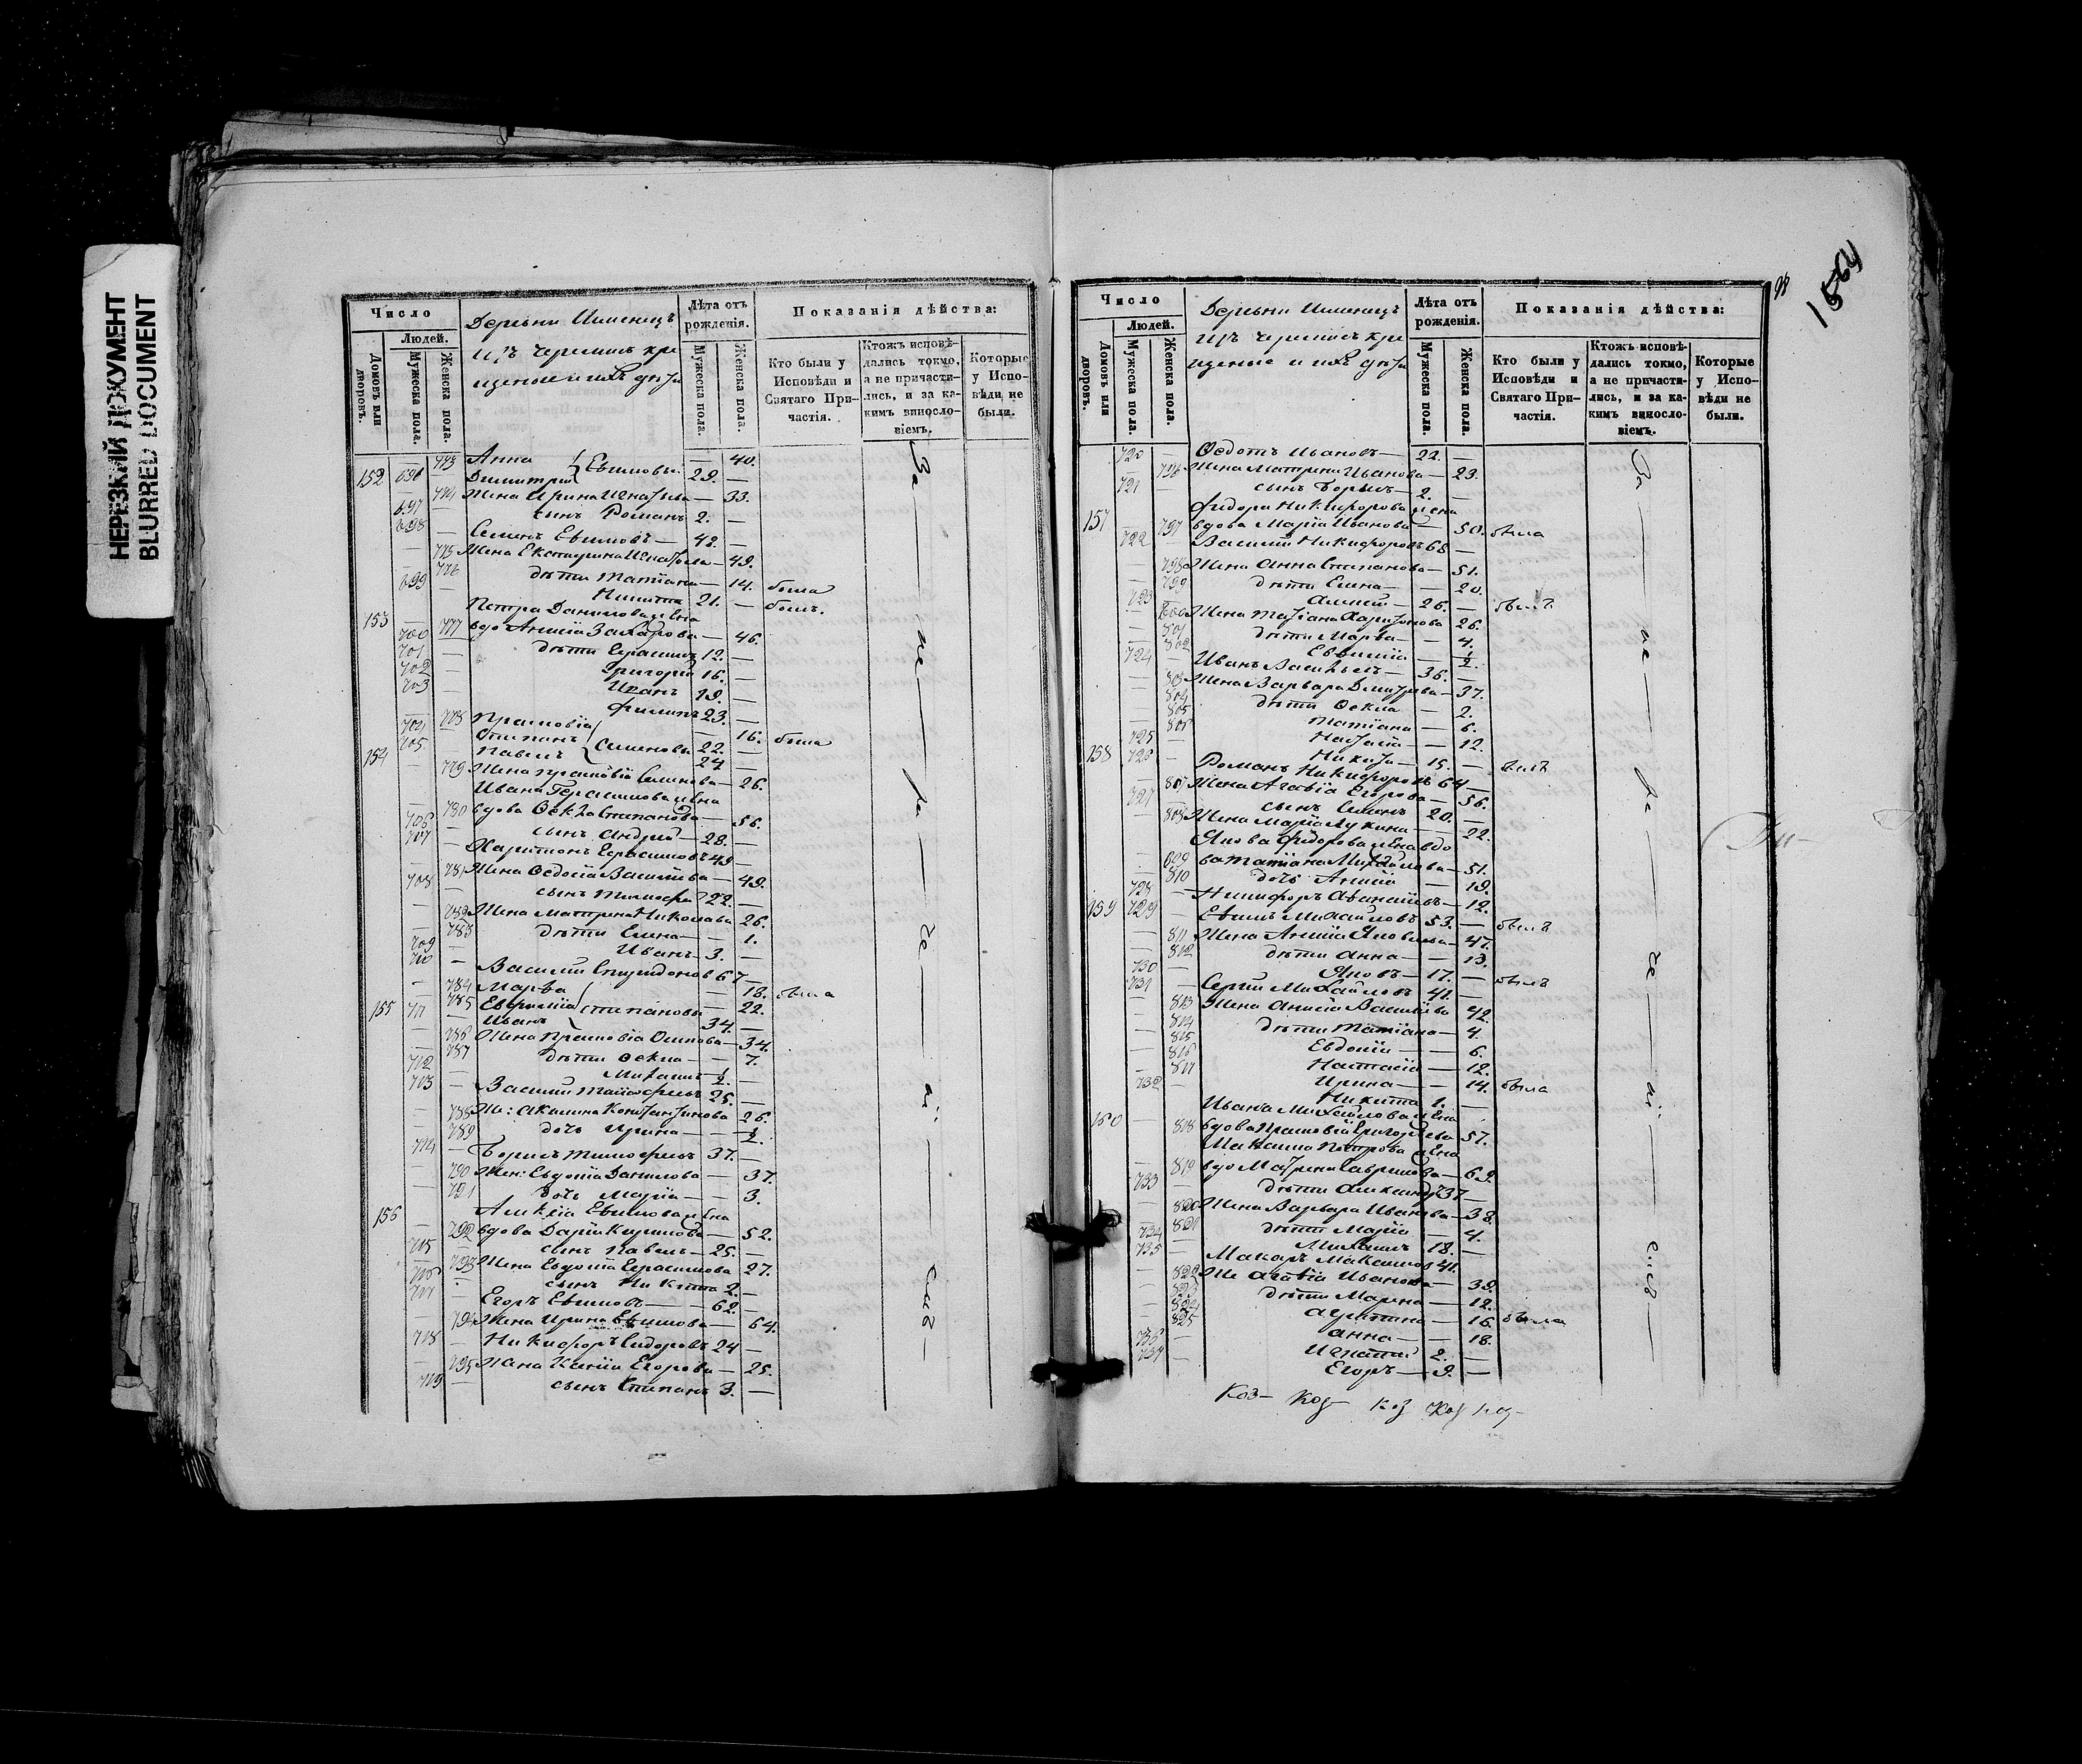 НЕРЕЗКИЙ ДОКУМЕНТ
BLURRED DOCUMENT
Число
Людей.
Домовъ или дворовъ.
Мужеска пола.
Женска пола.
Деревни
изъ черемисъ кре
щеные и ихъ дѣти
Лѣта отъ рожденія.
Мужеска пола.
Женска пола.
Показанія дѣйства:
Кто были у Исповѣди и Святаго При-
частія.
Ктожъ исповѣ-
дались токмо,
а не причасти-
лись, и за ка-
кимъ винoсло-
віемъ.
Которые
у Испо-
вѣди не
были.
773 Анна } Ефимовы — 40.
152 696 Димитрій 29. —
774 Жена Ирина Игнатьева — 33.
697 сынъ Романъ 2. —
698 Семенъ Ефимовъ — 42. —
775 Жена Екатерина Игнатьева — 49.
776 дѣти Татіана — 14. была
699 Никита 21. — былъ.
153 Петра Данилова жена
777 вдо Анисія Захарова — 46.
700 дѣти Герасимъ 12. —
701 Григорій 16. —
702 Иванъ 19. —
703 Филипъ 23. —
778 Прасковія — 16. была
704 Степанъ } Семеновы 22. —
154 705 Павелъ 24 —
779 Жена Прасковія Семенова — 26.
Ивана Герасимова жена
780 вдова Ѳекла Степанова — 56.
706 сынъ Андрей — 28. —
707 Харитонъ Герасимовъ 49 —
781 Жена Ѳедосія Васильева — 49.
708 сынъ Тимофей 22. —
782 Жена Матрена Николаева 26.
783 дѣти Елена — 1.
709 Иванъ — 3. —
710 Василій Спиридоновъ 67 —
784 Марѳа — 18. была
785 Евфимія } Степановы — 22.
155 711 Иванъ 34. —
786 Жена Прасковія Осипова — 34.
787 дѣти Ѳекла — 7.
712 Михаилъ ½. —
713 Василій Тимофеевъ 25. —
788 Же: Акилина Константинова 26.
789 дочь Ирина — ½.
714 Борисъ Тимофеевъ 37. —
790 Жен: Евдокія Данилова — 37.
791 дочь Марія — 3.
156 Алексія Ефимова жена
792 вдова Дарія Кирилова — 52.
715 сынъ Павелъ — 25. —
793 Жена Евдокія Герасимова 27.
716 сынъ Никита 2. —
717 Егоръ Ефимовъ — 62. —
794 Жена Ирина Ефимова — 64.
718 Никифоръ Сидоровъ 24 —
795 Жена Ксенія Егорова — 25.
719 сынъ Степанъ 3. —
За — не — ра — че — ні — емъ —
1564
Число
Людей.
Домовъ или дворовъ.
Мужеска пола.
Женска пола.
Деревни
изъ черемисъ кре
щеные и ихъ дѣти
Лѣта отъ рожденія.
Мужеска пола.
Женска пола.
Показанія дѣйства:
Кто были у Исповѣди и Святаго При-
частія.
Ктожъ исповѣ-
дались токмо,
а не причасти-
лись, и за ка-
кимъ винoсло-
віемъ.
Которые
у Испо-
вѣди не
были.
720 Ѳедотъ Ивановъ — 22. —
796 Жена Матрена Иванова — 23.
721 сынъ Борисъ — 2. —
Фидора Никифорова жена
157 797 вдова Марія Иванова 50. была
722 Василій Никифоровъ 68 —
798 Жена Анна Степанова — 51.
799 дѣти Елена — 20.
723 Алексій — 26. — былъ
800 Жена Татіана Харитонова 26.
801 дѣти Марѳа — 4.
802 Евфимія — ½.
724 Иванъ Васильевъ — 36. —
803 Жена Варвара Дмитрева — 37.
804 дѣти Ѳекла — 2.
805 Татіана — 6.
806 Настасія — 12.
725 Никита — 15. — былъ
158 726 Романъ Никифоровъ 64 —
807 Жена Агафія Егорова — 56.
727 сынъ Семенъ 20. —
808 Жена Марія Лукина — 22.
Якова Фидорова жена вдо
809 ва Татіана Михайлова — 51.
810 дочь Анисія — 19.
728 Никифоръ Аѳанасьевъ — 12.
159 729 Ефимъ Михайловъ 53. — былъ
811 Жена Анисія Яковлева — 47.
812 дѣти Анна — 13.
730 Яковъ — 17. — былъ
731 Сергій Михайловъ 41. —
813 Жена Анисія Васильева 42.
814 дѣти Татіана — 4.
815 Евдокія — 6.
816 Настасія — 12.
817 Ирина — 14. была
732 Никита 1. —
Ивана Михайлова жена
160 818 вдова Прасковія Григорьева 57.
Максима Петрова жена
819 вдо Матрена Гаврилова — 69.
733 дѣти Александръ 37 —
820 Жена Варвара Иванова — 38.
821 дѣти Марія — 4.
734 Михаилъ 18. —
735 Макаръ Максимовъ 41.
822 Же Агафія Иванова — 39.
823 дѣти Марина — 12.
824 — 16. была
825 Анна — 18.
736 Игнатій 2. —
737 Егоръ — 9. —
За — не — ра — че — ні — емъ —
Коз- Коз- Коз Коз Коз-